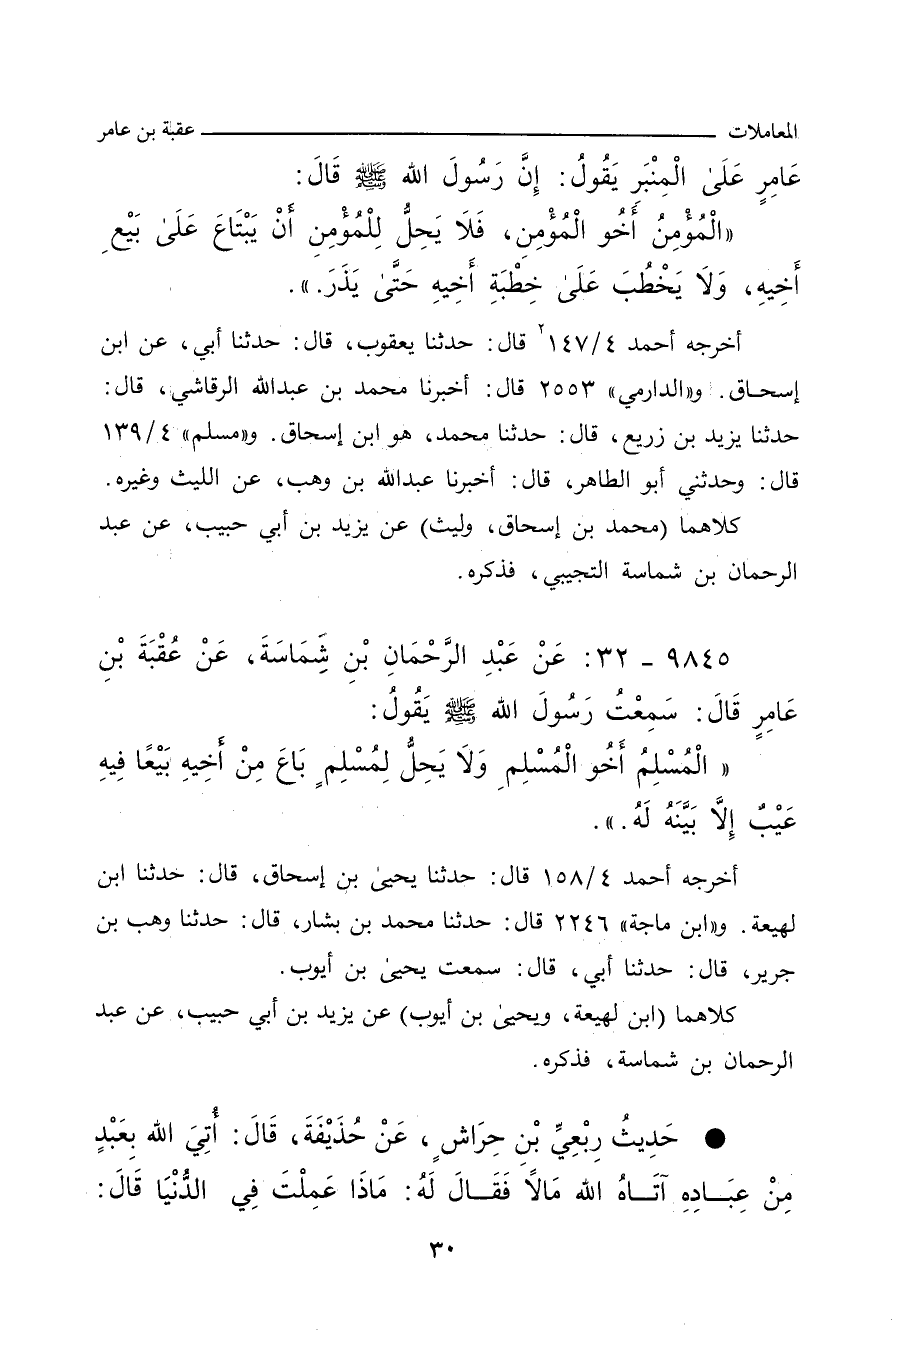 المعاملات ــــــــــــــــــــــــــــــــــــ عقبة بن عامر
عَامِرٍ عَلَىٰ الْمِنْبَرِ يَقُولُ: إِنَّ رَسُولَ الله ﷺ قَالَ:
«الْمُؤْمِنُ أَخُو الْمُؤْمِنِ، فَلَا يَحِلُّ لِلْمُؤْمِنِ أَنْ يَبْتَاعَ عَلَىٰ بَيْعِ
أَخِيهِ، وَلَا يَخْطُبَ عَلَىٰ خِطْبَةِ أَخِيهِ حَتَّىٰ يَذَرَ.».
أخرجه أحمد ١٤٧/٤ قال: حدثنا يعقوب، قال: حدثنا أبي، عن ابن
إسحاق. و«الدارمي» ٢٥٥٣ قال: أخبرنا محمد بن عبدالله الرقاشي، قال:
حدثنا يزيد بن زريع، قال: حدثنا محمد، هو ابن إسحاق. و«مسلم» ١٣٩/٤
قال: وحدثني أبو الطاهر، قال: أخبرنا عبدالله بن وهب، عن الليث وغيره.
كلاهما (محمد بن إسحاق، وليث) عن يزيد بن أبي حبيب، عن عبد
الرحمان بن شماسة التجيبي، فذكره.
٩٨٤٥ - ٣٢: عَنْ عَبْدِ الرَّحْمَانِ بْنِ شِمَاسَةَ، عَنْ عُقْبَةَ بْنِ
عَامِرٍ قَالَ: سَمِعْتُ رَسُولَ الله ﷺ يَقُولُ:
« الْمُسْلِمُ أَخُو الْمُسْلِمِ وَلَا يَحِلُّ لِمُسْلِمٍ بَاعَ مِنْ أَخِيهِ بَيْعًا فِيهِ
عَيْبٌ إِلَّا بَيَّنَهُ لَهُ.».
أخرجه أحمد ١٥٨/٤ قال: حدثنا يحيىٰ بن إسحاق، قال: حدثنا ابن
لهيعة. و«ابن ماجة» ٢٢٤٦ قال: حدثنا محمد بن بشار، قال: حدثنا وهب بن
جرير، قال: حدثنا أبي، قال: سمعت يحيىٰ بن أيوب.
كلاهما (ابن لهيعة، ويحيىٰ بن أيوب) عن يزيد بن أبي حبيب، عن عبد
الرحمان بن شماسة، فذكره.
● حَدِيثُ رِبْعِيِّ بْنِ حِرَاشٍ، عَنْ حُذَيْفَةَ، قَالَ: أُتِيَ الله بِعَبْدٍ
مِنْ عِبَـــادِهِ آتَـــاهُ الله مَالًا فَقَـــالَ لَهُ: مَاذَا عَمِلْتَ فِي الدُّنْيَا قَالَ:
٣٠